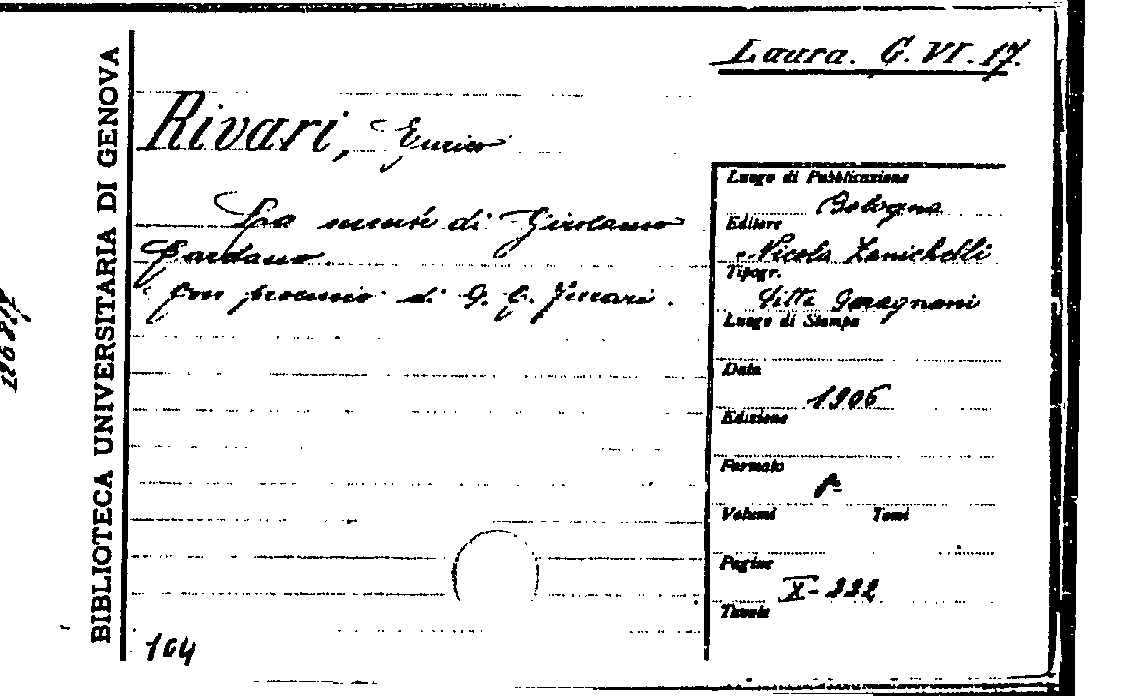 Laura. G. VI. 17.
BIBLIOTECA UNIVERSITARIA DI GENOVA
Rivari, Enrico
La mente di Girolamo
Cardano.
Con proemio di G. C. Ferrari.
104
Luogo di Pubblicazione
Bologna
Editore
Nicola Zanichelli
Tipogr.
Ditta Garagnani
Luogo di Stampa
Data
1906
Edizione
Formato
8º
Volumi Tomi
Pagine
X-222
Tavole